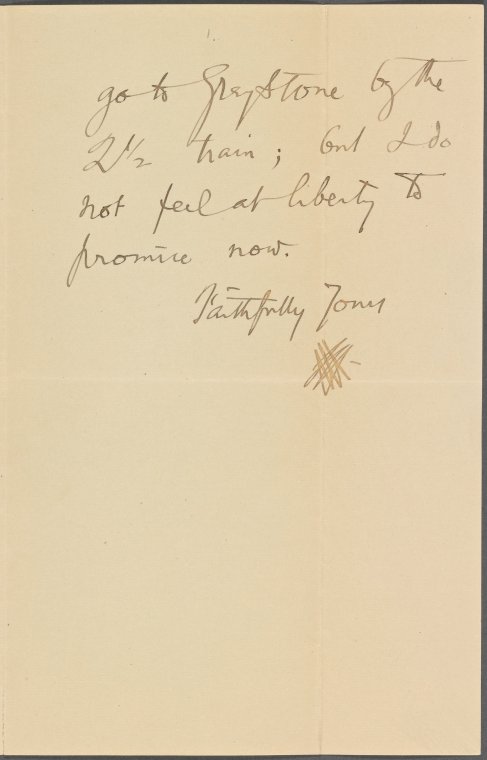 go to Greystone by the
2 1/2 train; but I do
not feel at liberty to
promise now.
Faithfully Yours